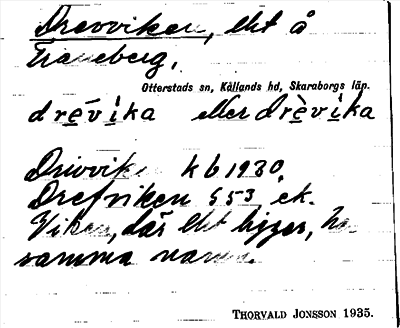 Drevviken, lht å
Traneberg.
Otterstads sn, Kållands hd, Skaraborgs län.
drevika eller drevika
Drivviken kb 1930.
Drefviken S53 ek.
Viken, där lht ligger, har
samma namn.
THORVALD JONSSON 1935.